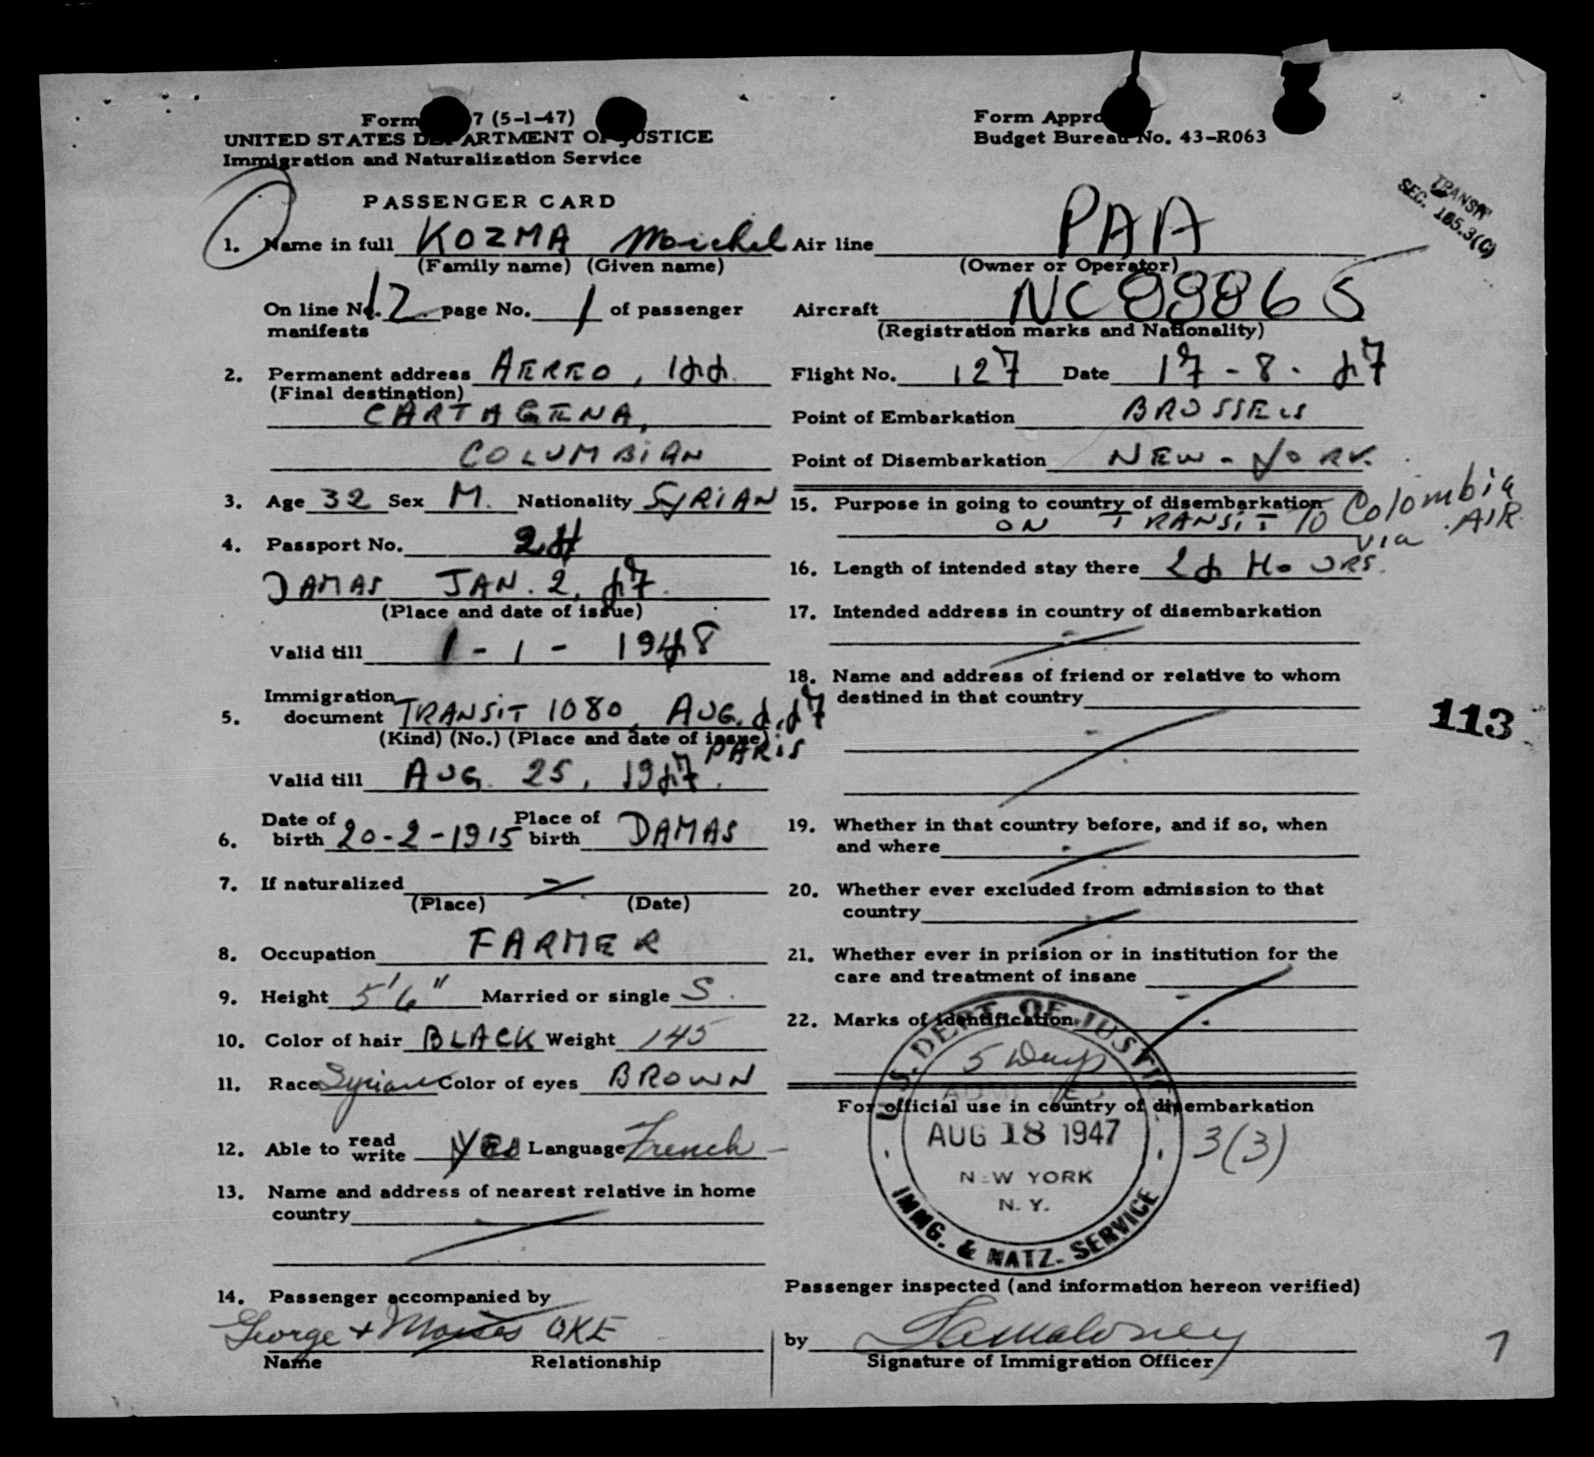 Form 7 (5-1-47)
UNITED STATES DEPARTMENT OF JUSTICE
Immigration and Naturalization Service
Form Appro
Budget Bureau No. 43-R063
TRANSIT
SEC. 165.3(C)
PASSENGER CARD
1. Name in full KOZMA Maichel
(Family name) (Given name)
On line No. 12 page No. 1 of passenger
manifests
2. Permanent address AEREO, 144.
(Final destination)
CARTAGENA,
COLUMBIAN
3. Age 32 Sex M. Nationality SYRIAN
4. Passport No. 24
DAMAS JAN. 2, 47.
(Place and date of issue)
Valid till 1 - 1 - 1948
5. Immigration
document TRANSIT 1080, AUG. 4. 47
(Kind) (No.) (Place and date of issue)
PARIS
Valid till AUG. 25, 1947.
6. Date of birth 20-2-1915 Place of birth DAMAS
7. If naturalized
(Place) (Date)
8. Occupation FARMER
9. Height 5'6" Married or single S.
10. Color of hair BLACK Weight 145
11. Race Syrian Color of eyes BROWN
12. Able to read write YES Language French
13. Name and address of nearest relative in home
country
14. Passenger accompanied by
George + Moises OKE
Name Relationship
Air line PAA
(Owner or Operator)
Aircraft NC88865
(Registration marks and Nationality)
Flight No. 127 Date 17-8-47
Point of Embarkation BRUSSELS
Point of Disembarkation NEW-YORK.
15. Purpose in going to country of disembarkation
ON TRANSIT TO Colombia
via AIR
16. Length of intended stay there 24 HOURS.
17. Intended address in country of disembarkation
18. Name and address of friend or relative to whom
destined in that country
113
19. Whether in that country before, and if so, when
and where
20. Whether ever excluded from admission to that
country
21. Whether ever in prision or in institution for the
care and treatment of insane
22. Marks of identification
U.S. DEPT. OF JUSTICE
5 Days
ADMITTED
For official use in country of disembarkation
AUG 18 1947
NEW YORK
N. Y.
IMMG. & NATZ. SERVICE
3(3)
Passenger inspected (and information hereon verified)
by
Signature of Immigration Officer
7